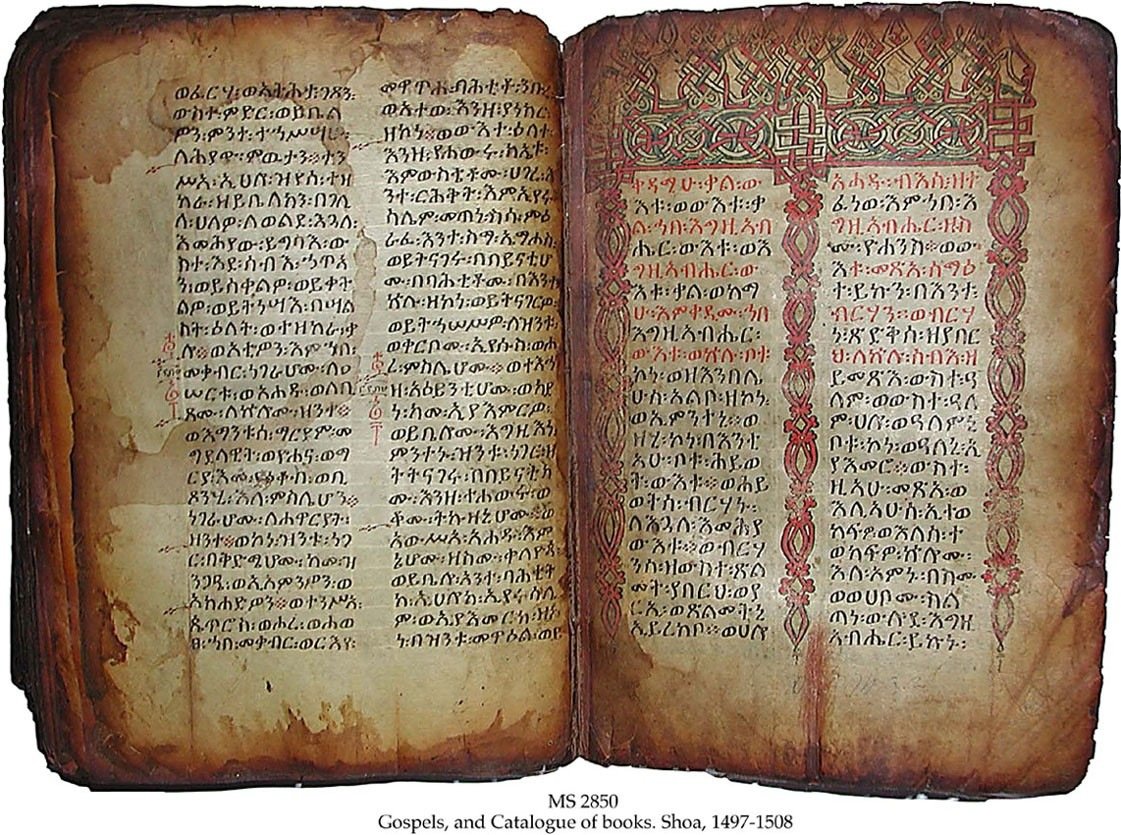 ወፈርሃ፡ወአትሐታ፡ገጾን፡
ውስተ፡ምድር፡ወይቤል
ዎን፡ምንተ፡ተኀሥሣሁ፡
ለሕያው፡ምውታን፡፡ተን
ሥአ፡ኢሀሎ፡ዝየሰ፡ተዝ
ከራ፡ዘይቤለክን፡በገሊ
ላ፡ሀለዎ፡ለወልደ፡እጓለ፡
እመሕያው፡ይግባእ፡ው
ስተ፡እደ፡ሰብእ፡ኃጥኣ
ን፡ወይሰቅልዎ፡ወይቀት
ልዎ፡ወይትነሣእ፡በሣል
ስት፡ዕለት፡ወተዘከራ፡ቃ
ሎ፡፡ወአቲዎን፡እምኀበ፡
መቃብር፡ነገራሆሙ፡ለዐ
ሠርቱ፡ወአሐዱ፡ወለቢ
ጾሙ፡ለኵሎሙ፡ዝንተ፡፡
ወእማንቱሰ፡ማርያም፡መ
ግደላዊት፡ወዮሐና፡ወማ
ርያ፡እሙ፡ወቢ
ጾንሂ፡እለ፡ምስሌሆን፡፡
ነገራሆሙ፡ለሐዋርያት፡
ዝንተ፡፡ወኮነ፡ዝንቱ፡ነገ
ር፡በቅድሜሆሙ፡ከመ፡ዝ
ንጋዔ፡ወኢአምንዎን፡ወ
አክሐድዎን፡፡ወተንሥአ፡
ጴጥሮስ፡ወሖረ፡ወሖወ
ፀ፡ኀበ፡መቃብር፡ወርእየ፡
መዋጥሐ፡ባሕቲቶ፡ንቡ
ወአተወ፡እንዘ፡ያነክር፡
ዘኮነ፡፡ወውእተ፡ዕለተ፡
እንዘ፡የሐውሩ፡ክልኤቱ፡
እምውስቴቶሙ፡ሀገረ፡እ
ንተ፡ርሕቅት፡እምኢየሩ
ሳሌም፡መጠነ፡ስሳ፡ምዕ
ራፈ፡እንተ፡ስማ፡ኤማሐስ
ወይትናገሩ፡በበይናቲሆ
ሙ፡በባሕቲቶሙ፡በእንተ
ኵሉ፡ዘኮነ፡ወይትናገርዎ
ወይትኀሠሥዎ፡ለዝንቱ፡
ወቀርቦሙ፡ኢየሱስ፡ወሖ
ረ፡ምስሌሆሙ፡፡ወተእኅ
ዘ፡አዕይንቲሆሙ፡ወከየ
ነ፡ከመ፡ኢያእምርዎ፡
ወይቤሎሙ፡እግዚእነ
ምንተኑ፡ዝንቱ፡ነገር፡ዘ
ትትናገሩ፡በበይናቲክ
ሙ፡እንዘ፡ተሐውሩ፡ወ
ቆሙ፡ትኩዛኒሆሙ፡፡ወ
አውሥአ፡አሐዱ፡እም
ኔሆሙ፡ዘስሙ፡ቀለዮጳ
ወይቤሎ፡አንተ፡ባሕቲት
ከ፡ኢሀሎከ፡ኢየሩሳሌ
ም፡ወኢያእመርከ፡ዝኮ
ነ፡በዝንቱ፡መዋዕል፡ወይ
ቀዳሚሁ፡ቃል፡ው
እቱ፡ወውእቱ፡ቃ
ል፡ኀበ፡እግዚአብ
ሔር፡ውእቱ፡ወእ
ግዚአብሔር፡ው
እቱ፡ቃል፡ወከማ
ሁ፡እምቀዲሙ፡ኀበ
እግዚአብሔር፡
ውእቱ፡ወኵሉ፡ቦቱ
ኮነ፡ወዘእንበሌ
ሁሰ፡አልቦ፡ዘኮነ፡
ወኢምንተኒ፡፡ወ
ዘሂ፡ኮነ፡በእንቲ
አሁ፡ቦቱ፡ሕይወ
ት፡ውእቱ፡፡ወሕይ
ወትሰ፡ብርሃኑ፡
ለእጓለ፡እመሕያ
ው፡እቱ፡፡ወብርሃ
ንሰ፡ዝውስተ፡ጽል
መት፡ያበርህ፡ወያ
ርኢ፡ወጽልመትኒ
ኢይረክቦ፡፡ወሀሎ
አሐዱ፡ብእሲ፡ዘተ
ፈነወ፡እም፡ኀበ፡እ
ግዚአብሔር፡ዘስ
ሙ፡ዮሐንስ፡፡ወው
እቱ፡መጽአ፡ለስምዕ
ት፡ይኩን፡በእንተ፡
ብርሃን፡፡ወብርሃ
ነ፡ጽድቅሰ፡ዘያበር
ህ፡ለኵሉ፡ሰብእ፡ዘ
ይመጽእ፡ውስተ፡ዓ
ለም፡ወውስተ፡ዓለ
ም፡ሀሎ፡ወዓለምኒ
ቦቱ፡ኮነ፡ወዓለሙኒ፡ኢ
ያእመሮ፡፡ውስተ፡
ዚአሁ፡መጽአ፡ወ
እሊአሁሰ፡ኢተወ
ከፍዎ፡ወእለሰ፡ተ
ወከፍዎ፡ኵሎሙ፡
እለ፡አምኑ፡በስሙ
ወወሀቦሙ፡ሥል
ጣነ፡ውሉደ፡እግዚ
አብሔር፡ይኩኑ፡
MS 2850
Gospels, and Catalogue of books. Shoa, 1497-1508